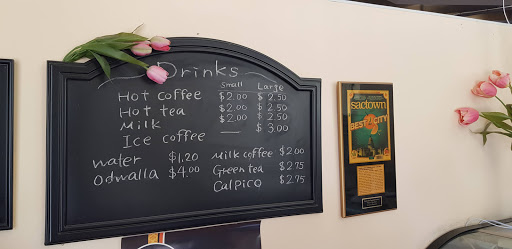 Drinks
Small Large
Hot coffee $2.00 $2.50
Hot tea $2.00 $2.50
Milk $2.00 $2.50
Ice coffee — $3.00
water $1.20
Odwalla $4.00
Milk coffee $2.00
Green tea $2.75
Calpico $2.75
sactown
BEST CITY